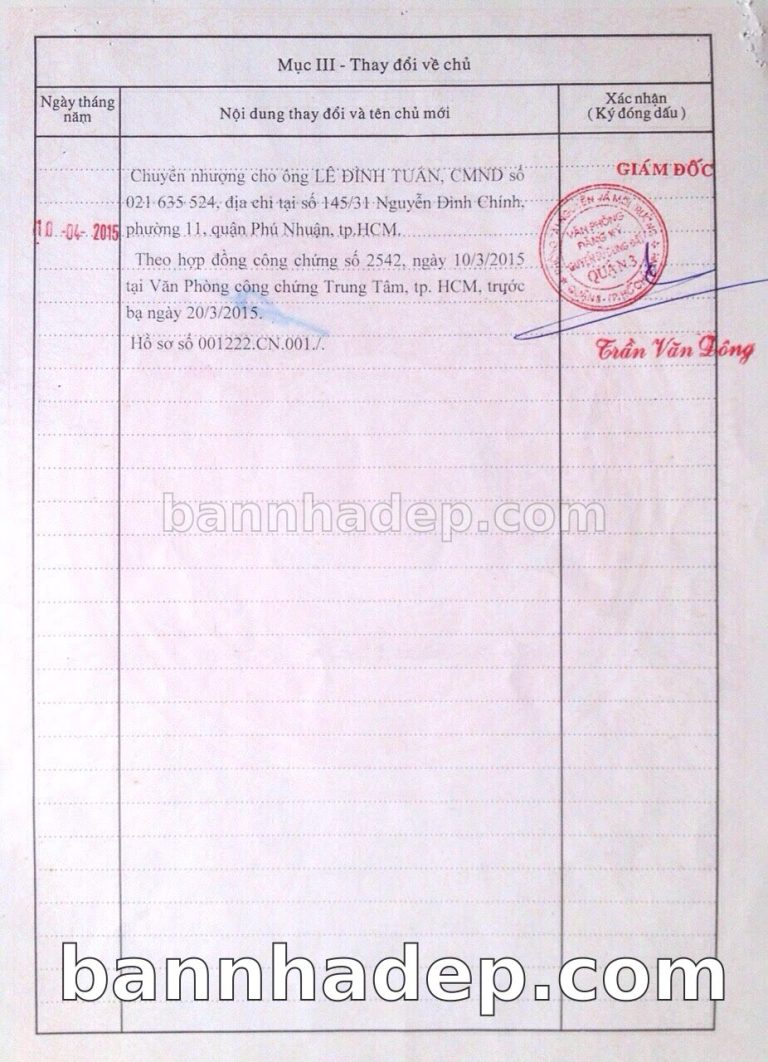 Mục III - Thay đổi về chủ
Ngày tháng
năm
Nội dung thay đổi và tên chủ mới
Xác nhận
( Ký đóng dấu )
10 -04- 2015
Chuyển nhượng cho ông LÊ ĐÌNH TUẤN, CMND số
021 635 524, địa chỉ tại số 145/31 Nguyễn Đình Chính,
phường 11, quận Phú Nhuận, tp.HCM.
Theo hợp đồng công chứng số 2542, ngày 10/3/2015
tại Văn Phòng công chứng Trung Tâm, tp. HCM, trước
bạ ngày 20/3/2015.
Hồ sơ số 001222.CN.001./.
GIÁM ĐỐC
VĂN PHÒNG
ĐĂNG KÝ
QUYỀN SỬ DỤNG ĐẤT
QUẬN 3
Trần Văn Đông
bannhadep.com
bannhadep.com